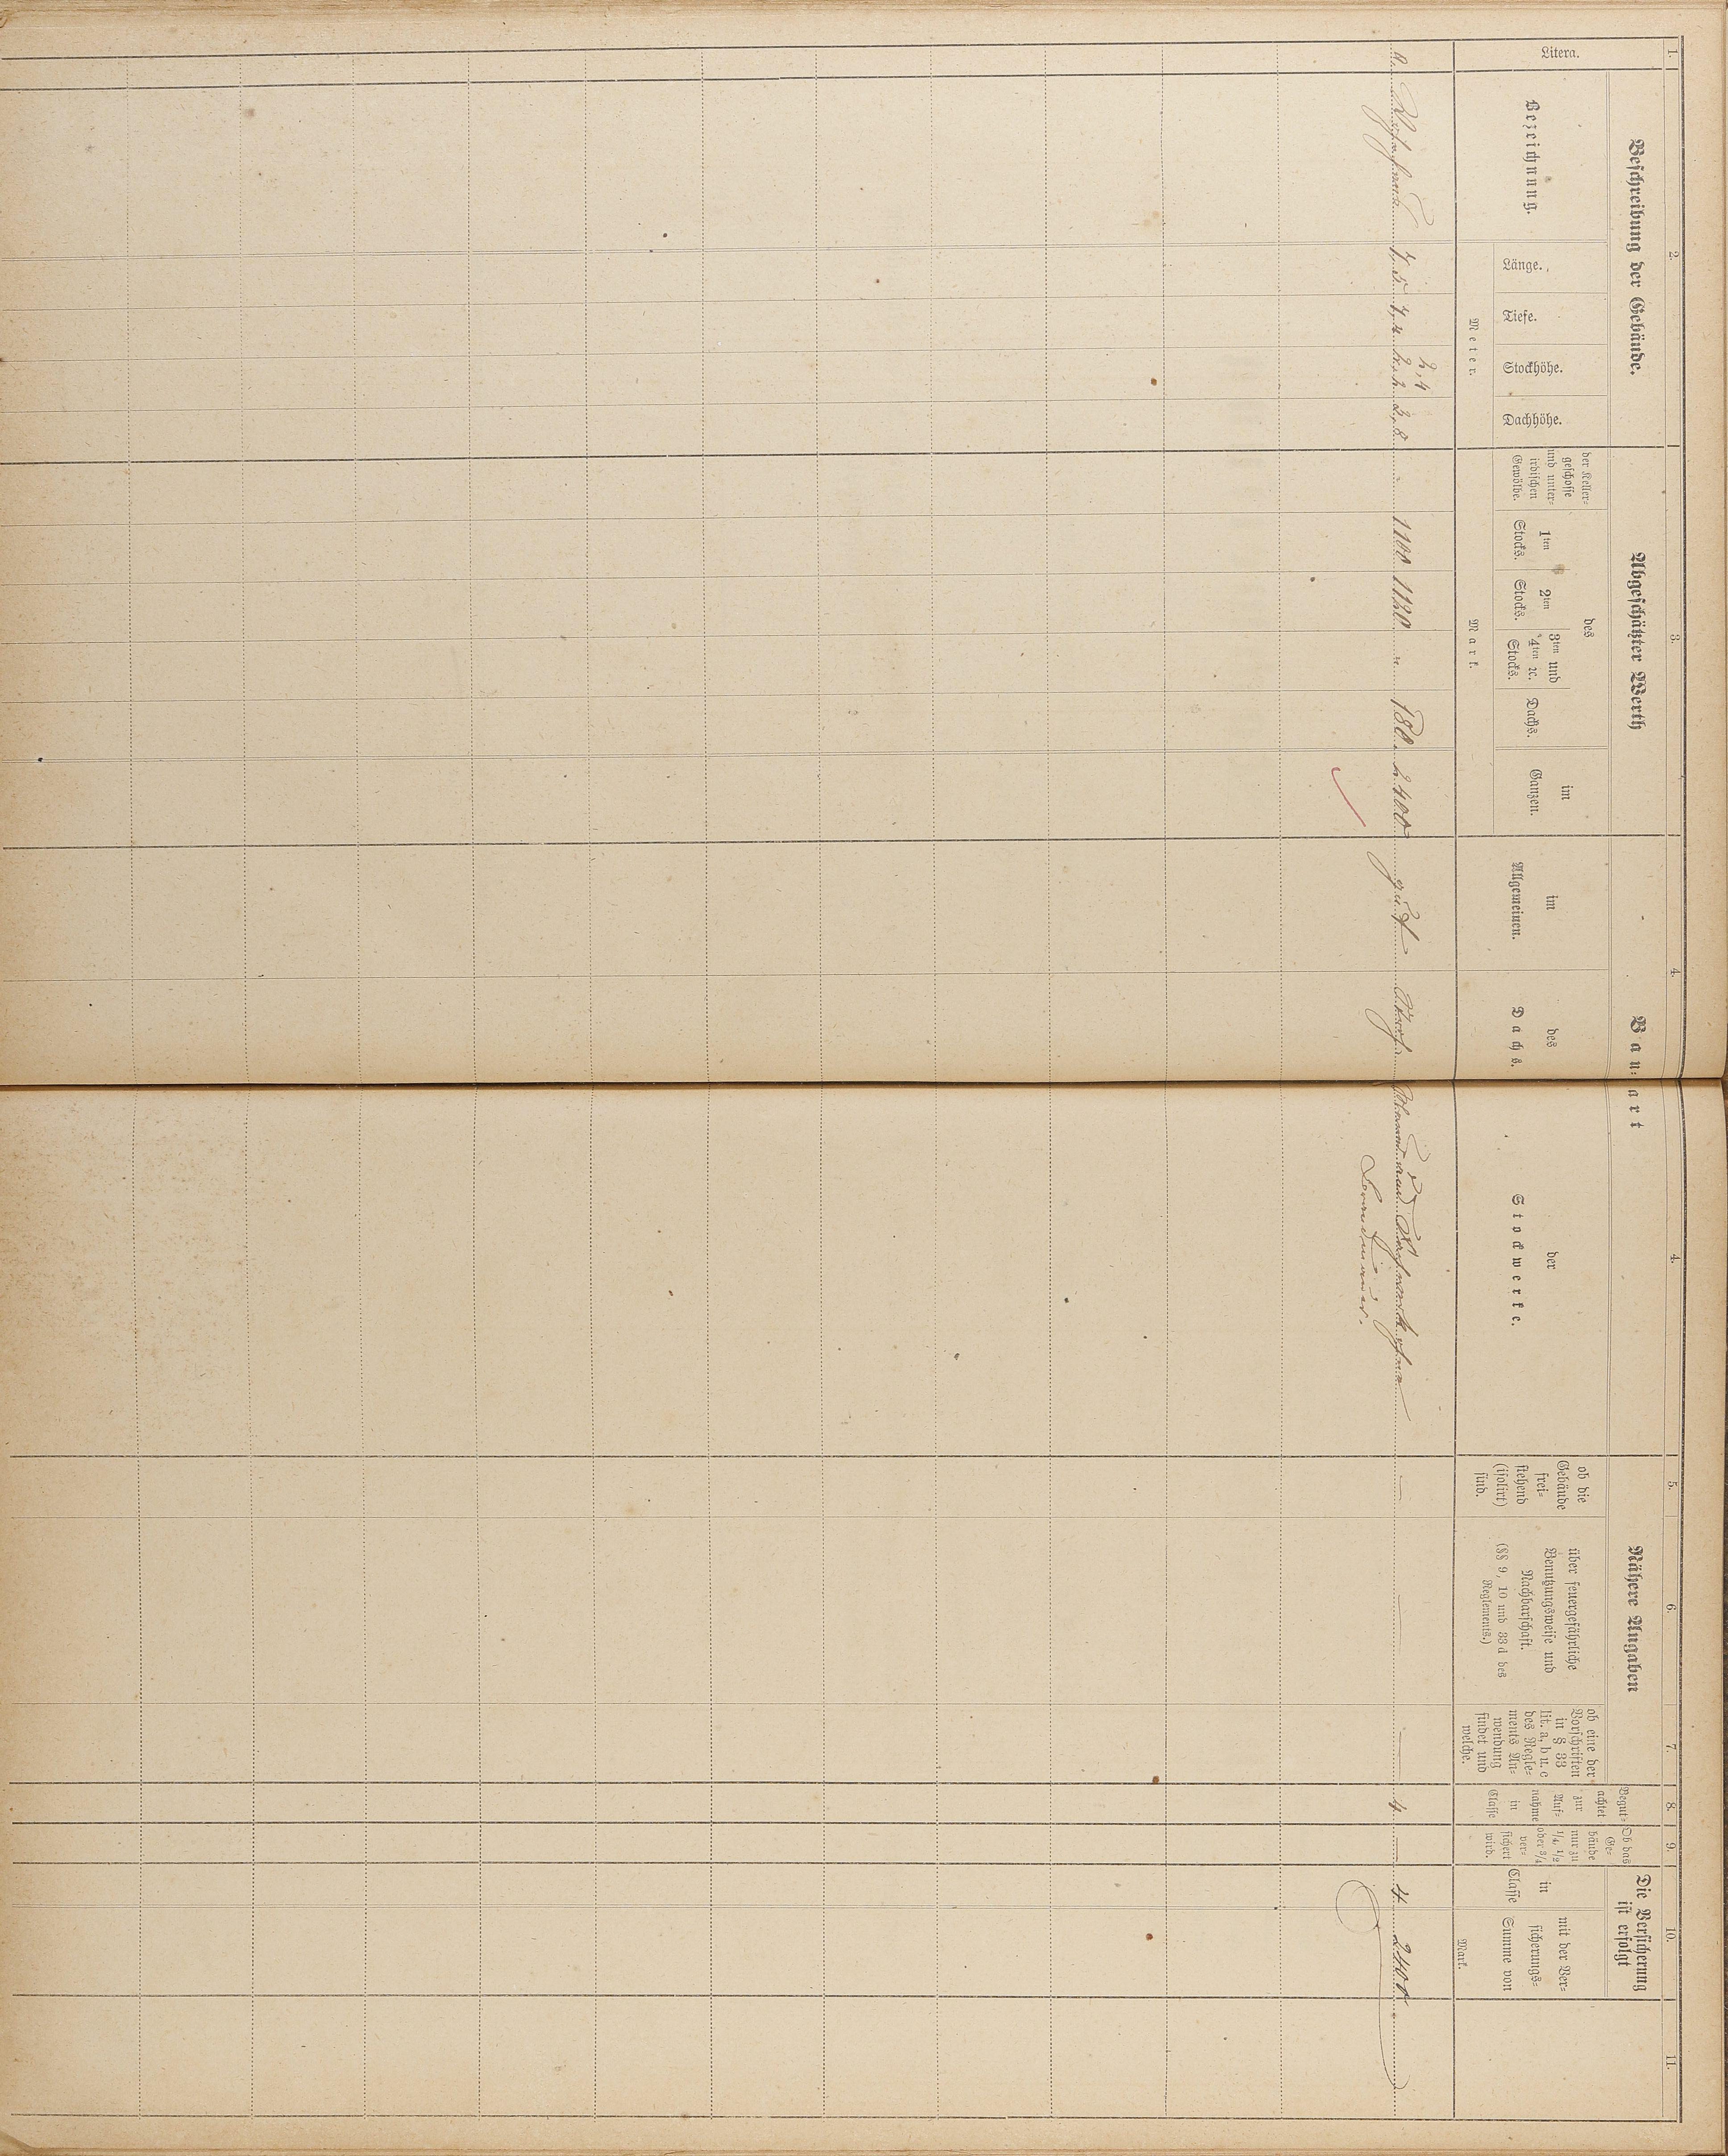 1. 2. 3. 4. 4. 5. 6. 7. 8. 9. 10. 11.
Beschreibung der Gebäude. Abgeschätzter Werth Bau-art Nähere Angaben Die Versicherung
ist erfolgt
Litera.
Bezeichnung.
Länge.
Tiefe.
Stockhöhe.
Dachhöhe.
Meter.
der Keller-
geschosse
und unter-
irdischen
Gewölbe.
des
1ten
Stocks.
2ten
Stocks.
3ten und
4ten ꝛc.
Stocks.
Dachs.
im
Ganzen.
Mark.
im
Allgemeinen.
des
Dachs.
der
Stockwerke.
ob die
Gebäude
frei-
stehend
(isolirt)
sind.
über feuergefährliche
Benutzungsweise und
Nachbarschaft.
(§§ 9, 10 und 33 d des
Reglements.)
ob eine der
Vorschriften
in § 33
lit. a, b u. c
des Regle-
ments An-
wendung
findet und
welche.
Begut-
achtet
zur
Auf-
nahme
in
Classe
Ob das
Ge-
bäude
nur zu
1/4, 1/2
oder 3/4
ver-
sichert
wird.
in
Classe
mit der Ver-
sicherungs-
Summe von
Mark.
2,4
a. Wohnhaus 7,5 7,4 2,2 2,8 " 1100 1120 " 180 2400 gut — — — 4 — 4 2400
Brandmauer.